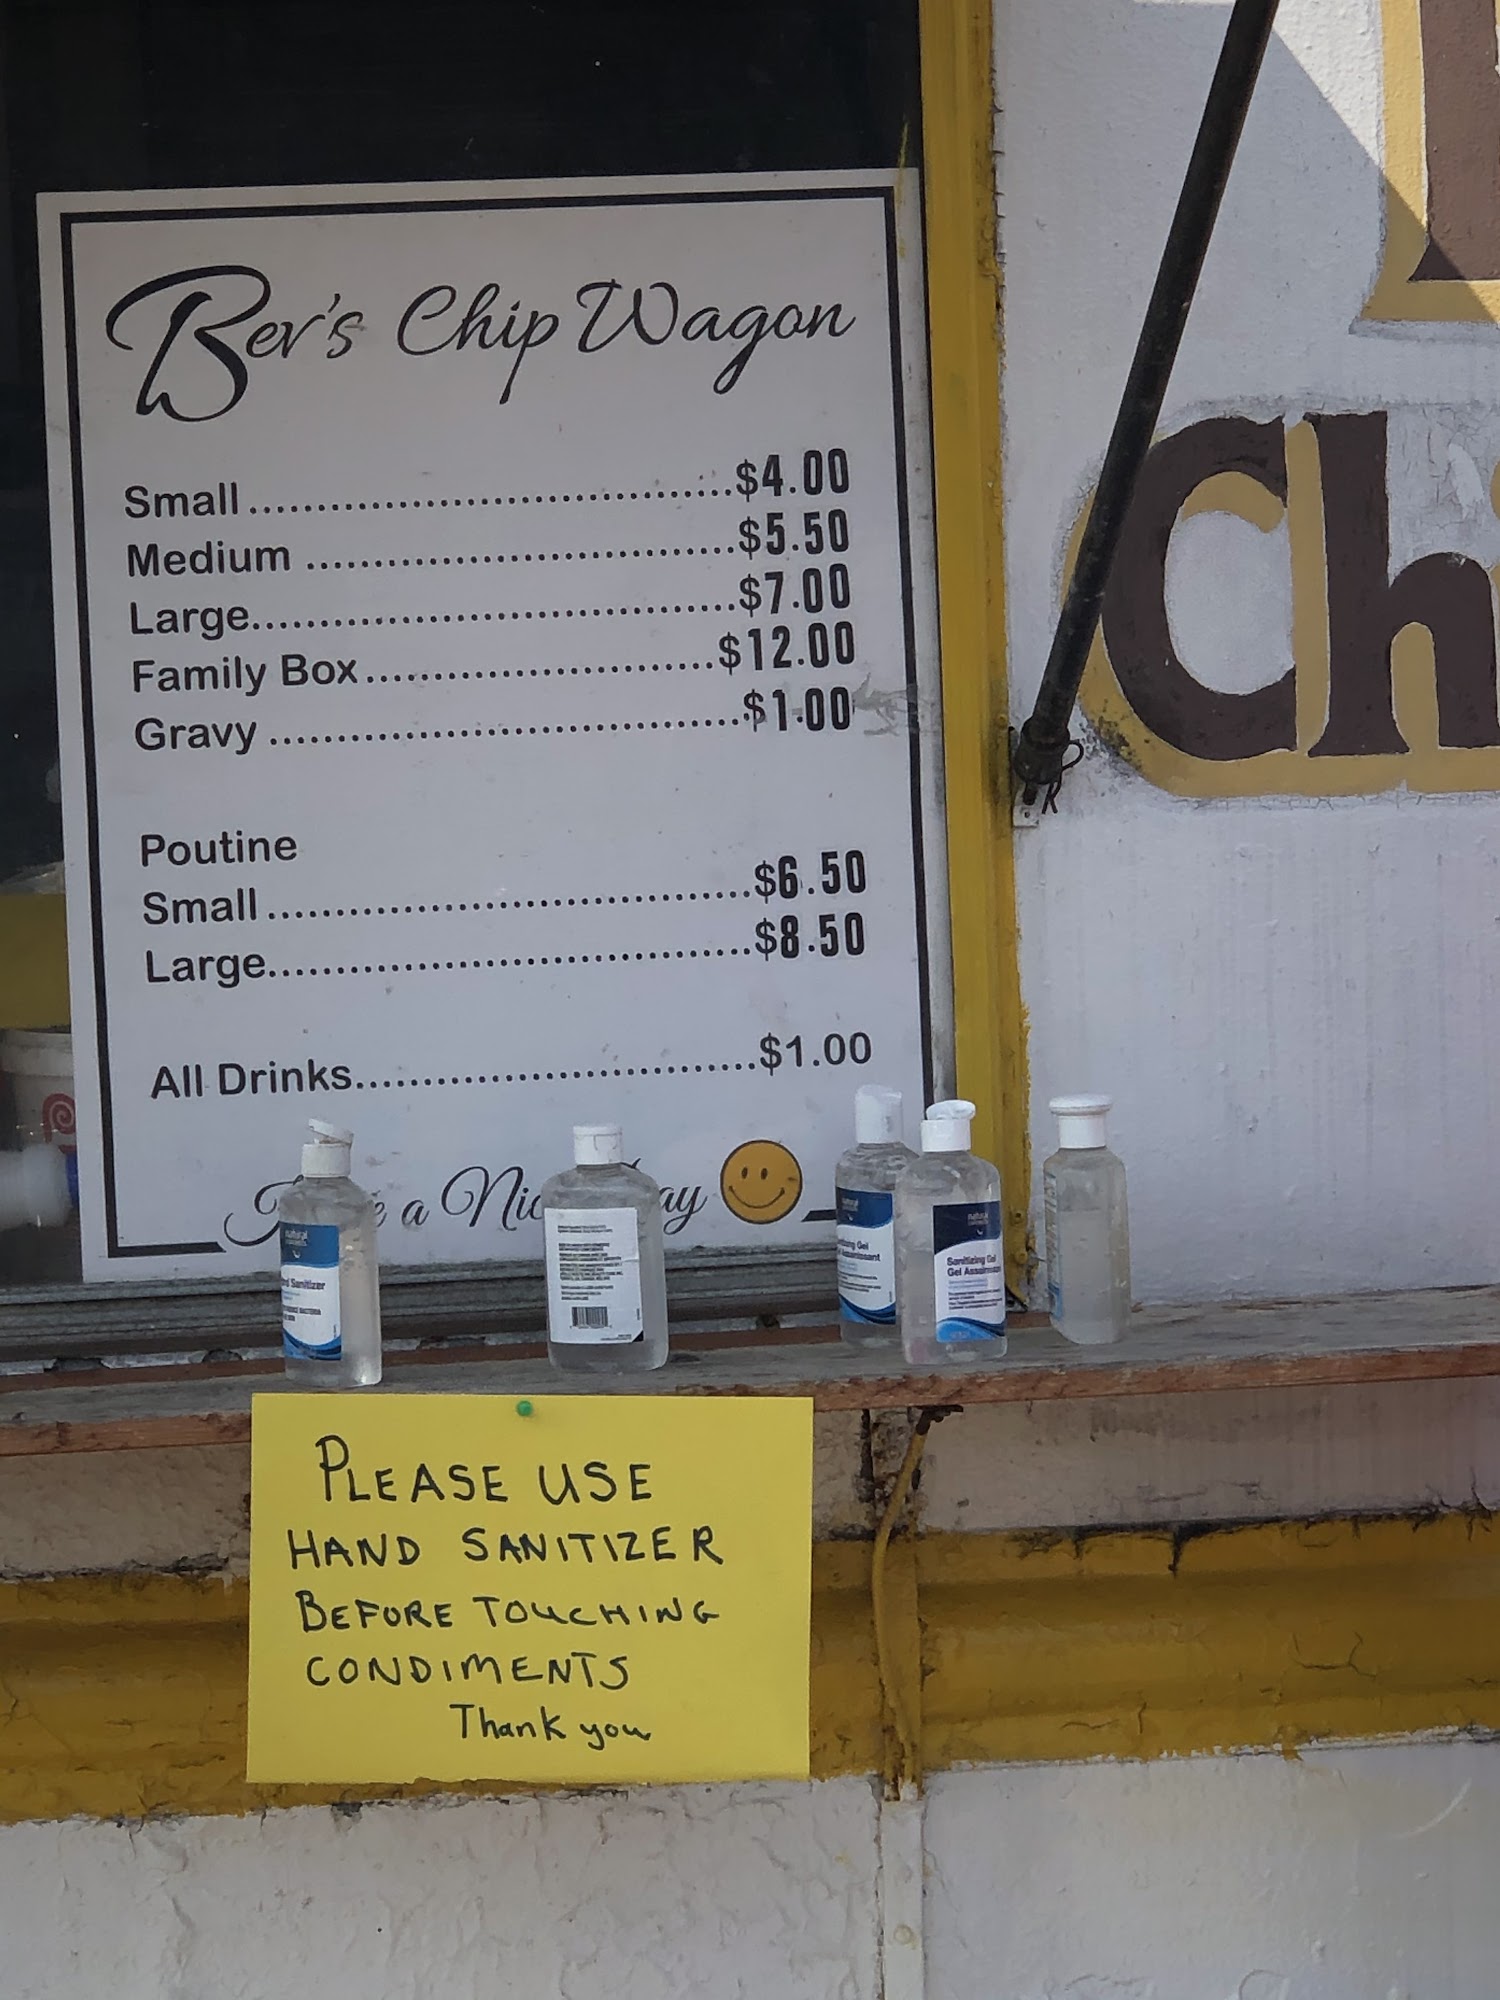 Bev's Chip Wagon
Small....................................$4.00
Medium ................................$5.50
Large....................................$7.00
Family Box..........................$12.00
Gravy ...................................$1.00
Poutine
Small....................................$6.50
Large....................................$8.50
All Drinks..............................$1.00
a
Ch
natural
Sanitizer
natural
Sanitizing Gel
Gel
PLEASE USE
HAND SANITIZER
BEFORE TOUCHING
CONDIMENTS
Thank you